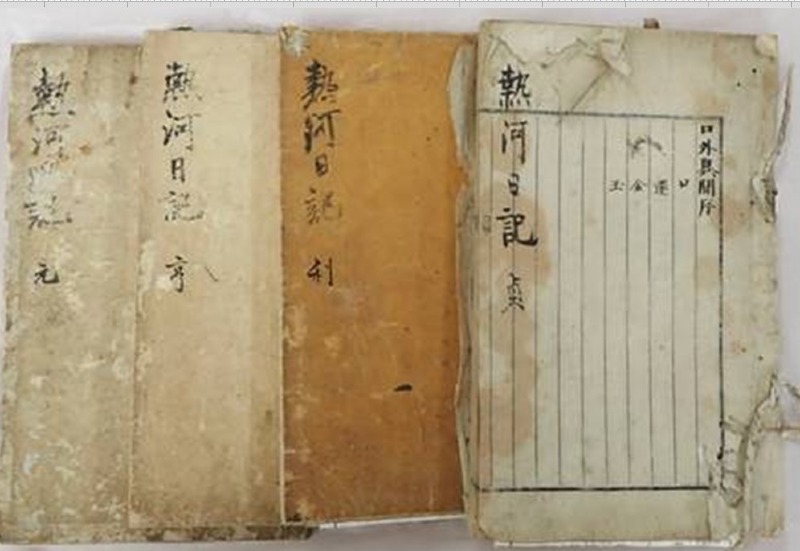 熱河日記 元
熱河日記 亨
熱河日記 利
熱河日記 貞
口外異聞序
口
遼
金
玉